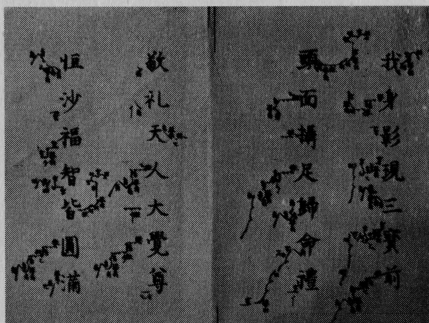 我身影現三寶前
頭面攝足歸命禮
敬礼天人大覺尊
恒沙福智皆圓滿